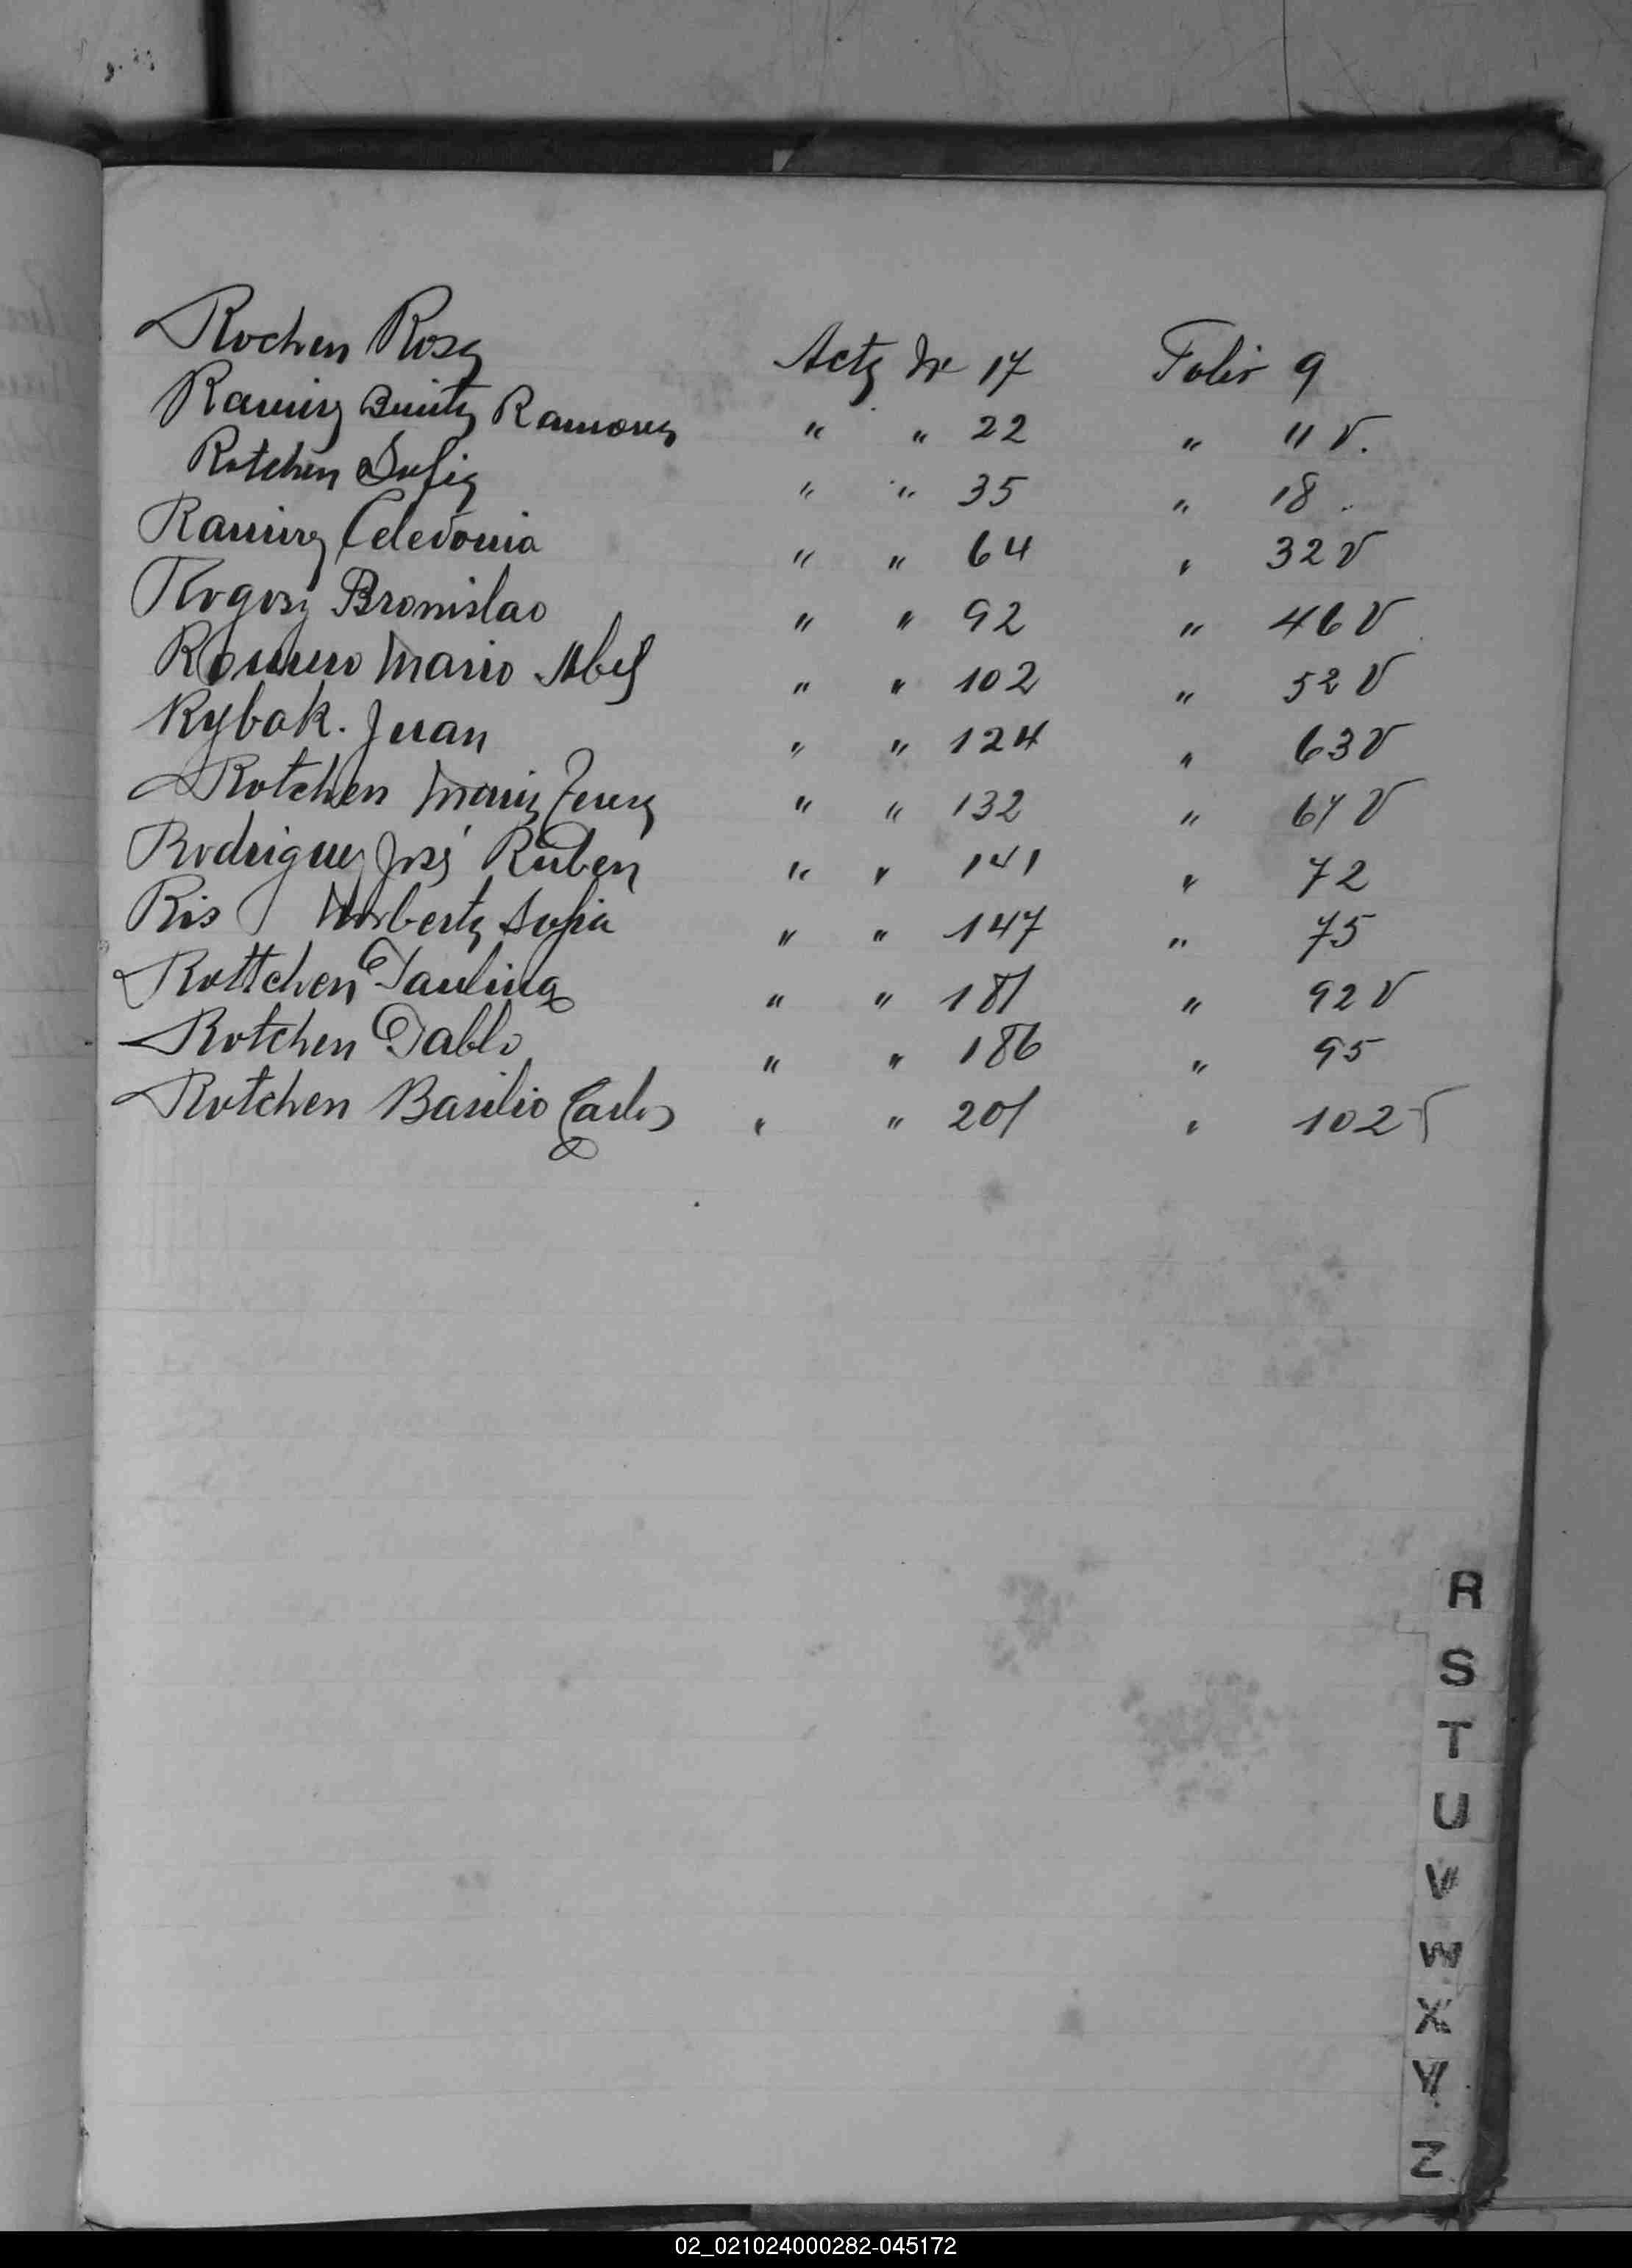 Rochen Rosa Acta Nº 17 Folio 9
Ramirez Benitez Ramona " " 22 " 11 V.
Rotchen Sofia " " 35 " 18
Ramirez Celedonia " " 64 " 32 V
Rogosz Bronislao " " 92 " 46 V
Romero Mario Abel " " 102 " 52 V
Rybak. Juan " " 124 " 63 V
Rotchen Maria Teresa " " 132 " 67 V
Rodriguez José Ruben " " 141 " 72
Ris Norberta Sofia " " 147 " 75
Rottchen Paulina " " 181 " 92 V
Rotchen Pablo " " 186 " 95
Rotchen Basilio Carlos " " 201 " 102 V
R
S
T
U
V
W
X
Y
Z
02_021024000282-045172